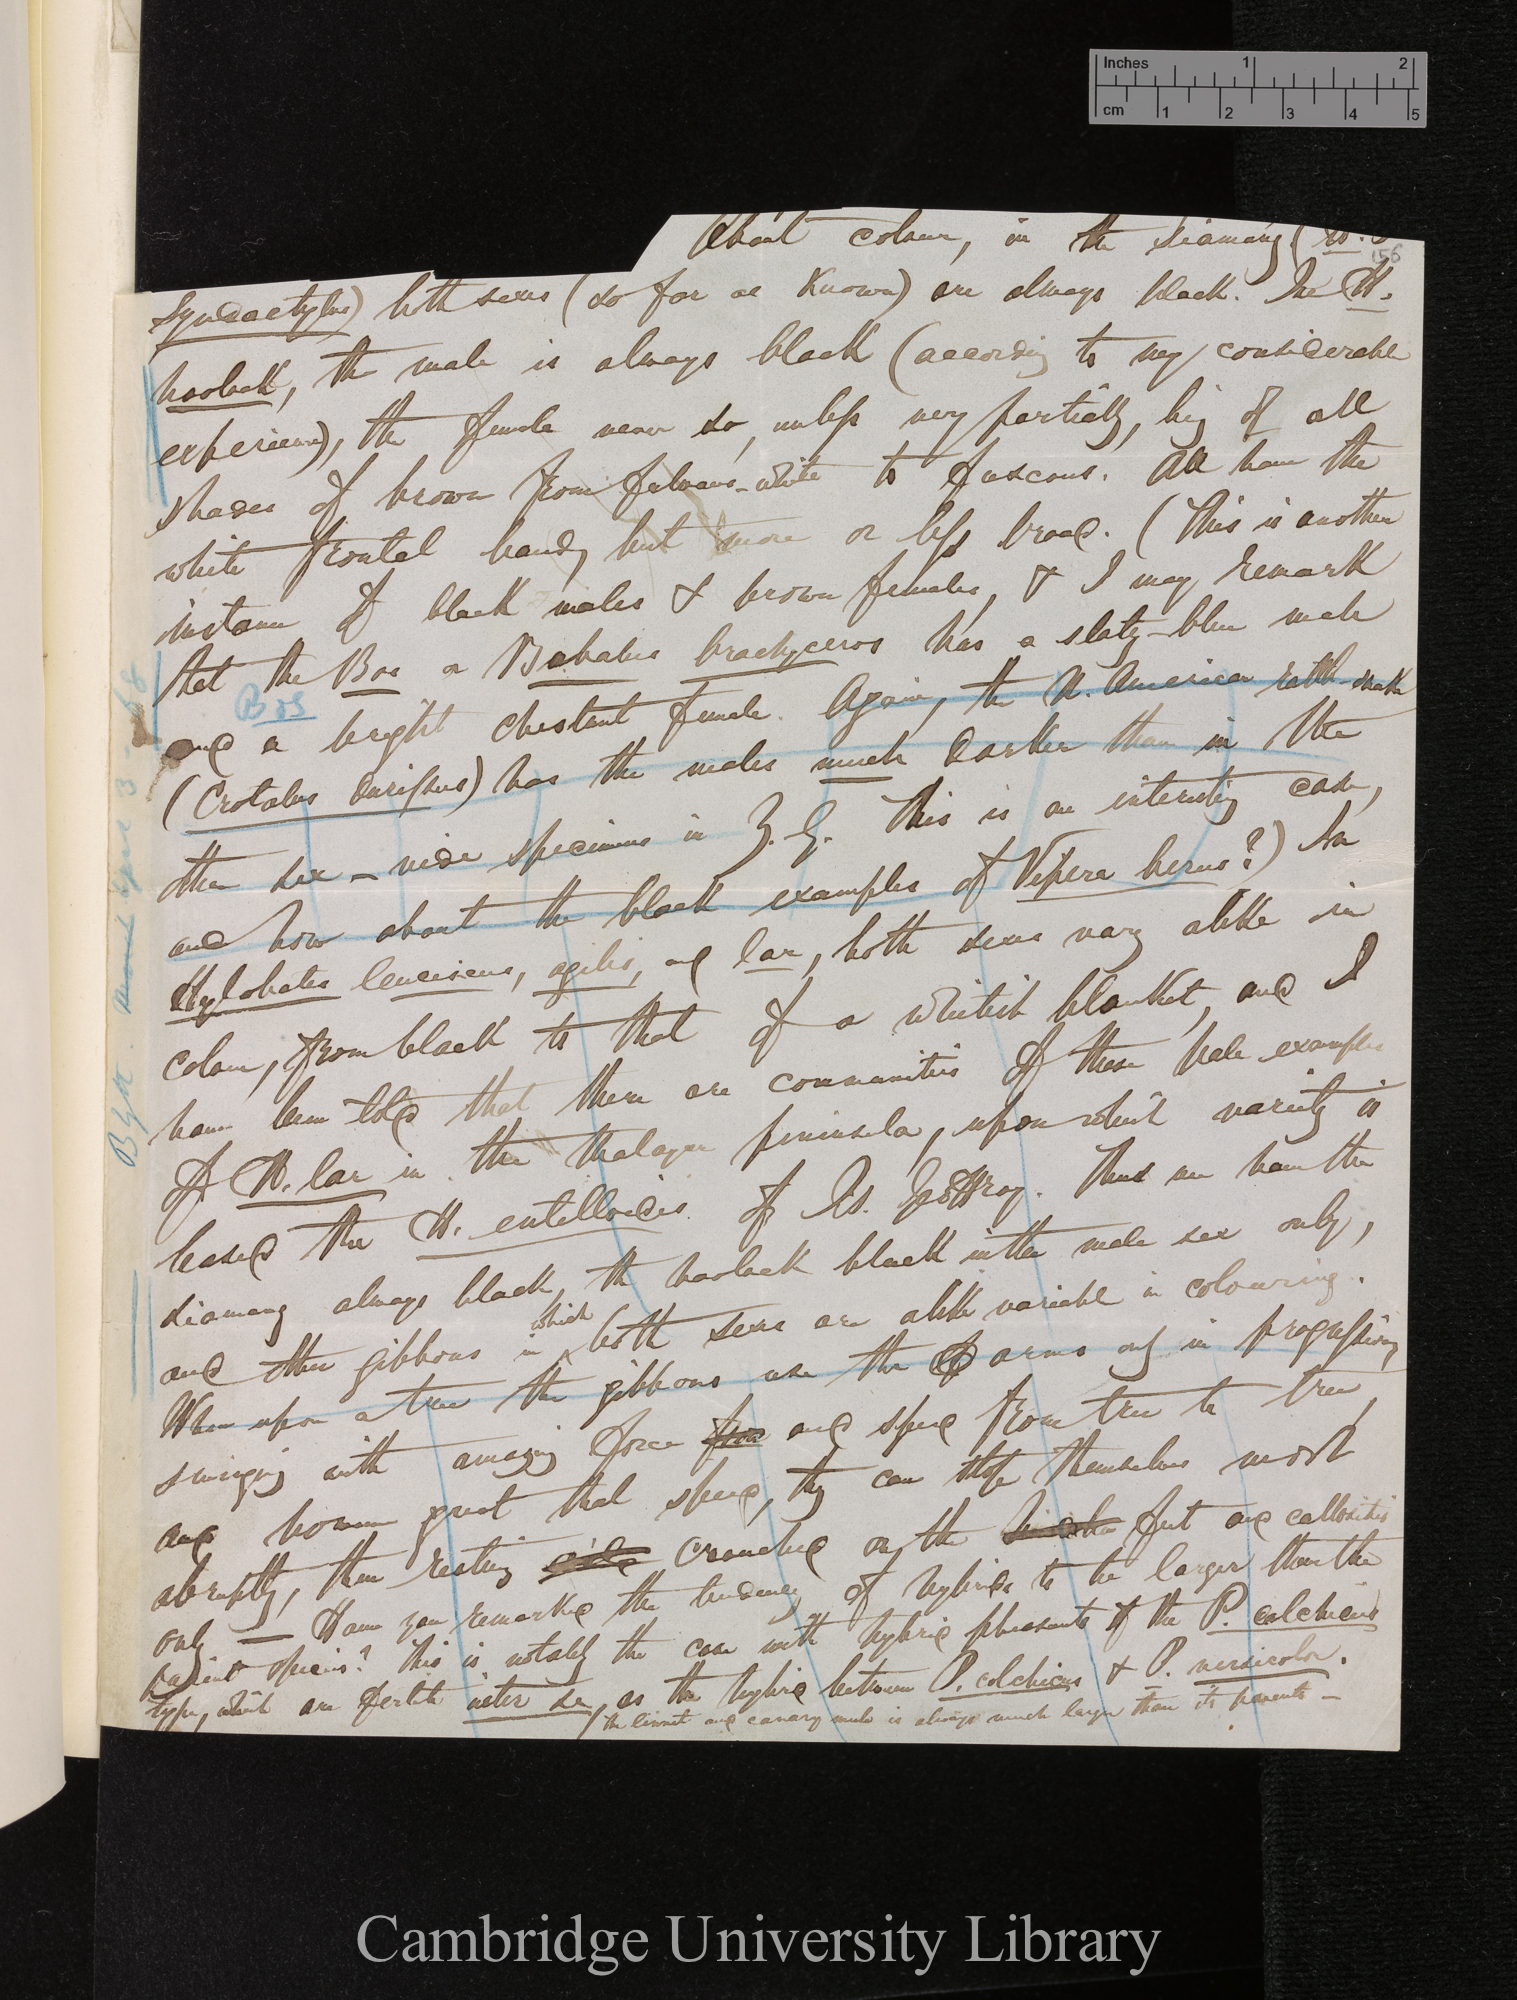 Inches 1 2
cm 1 2 3 4 5
About colour, in the Siamang (H.
156
syndactylus) both sexes (so far as known) are always black. In H.
hoolock, the male is always black (according to my considerable
experience), the female never so, unless very partially, being of all
shades of brown from fulvous-white to fuscous. All have the
white frontal band, but more or less broad. (This is another
instance of black males & brown females, & I may remark
that the Bos or Bubalus brachyceros has a slaty-blue male
Bos
and a bright chestnut female. Again, the N. American rattle-snake
(Crotalus durissus) has the males much darker than in the
other sex – vide specimens in Z. G. This is an interesting case,
and how about the black examples of Vipera berus?) In
Hylobates leuciscus, agilis, and lar, both sexes vary alike in
colour, from black to that of a whitish blanket, and I
have been told that there are communities of these pale examples
of H. lar in the Malayan peninsula, upon which variety is
based the H. entelloides of Is. Geoffroy. Thus we have the
siamang always black, the hoolock black in the male sex only,
and other gibbons in which both sexes are alike variable in colouring.
When upon a tree the gibbons use the arms only in progression,
swinging with amazing force and speed from tree to tree,
and however great that speed, they can stop themselves most
abruptly, then resting crouched on the feet and callosities
only — Have you remarked the tendency of hybrids to be larger than the
parent species? This is notably the case with hybrid pheasants of the P. colchicus
type, which are fertile inter se, as the hybrid between P. colchicus & P. versicolor.
The linnet and canary mule is always much larger than its parents –
Blyth.
Cambridge University Library